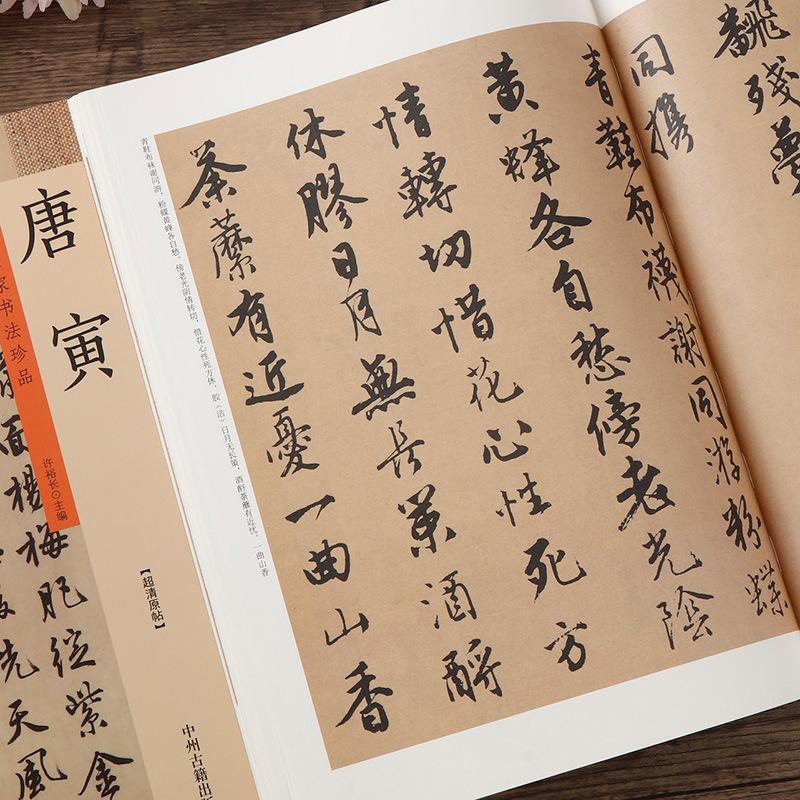 飜殘夢
同攜
青鞋布襪謝同游粉蝶
黃蜂各自愁傍老光陰
情轉切惜花心性死方
休膠日月無長策酒酹
荼蘼有近憂一曲山香
青鞋布袜谢同游,粉蝶黄蜂各自愁,傍老光阴情转切,惜花心性死方休,胶(洁)日月无长策,酒酹荼蘼有近忧,一曲山香
唐寅
家书法珍品
许裕长⊙主编
【超清原帖】
中州古籍出
面楊梅
肥綻紫金
先天風